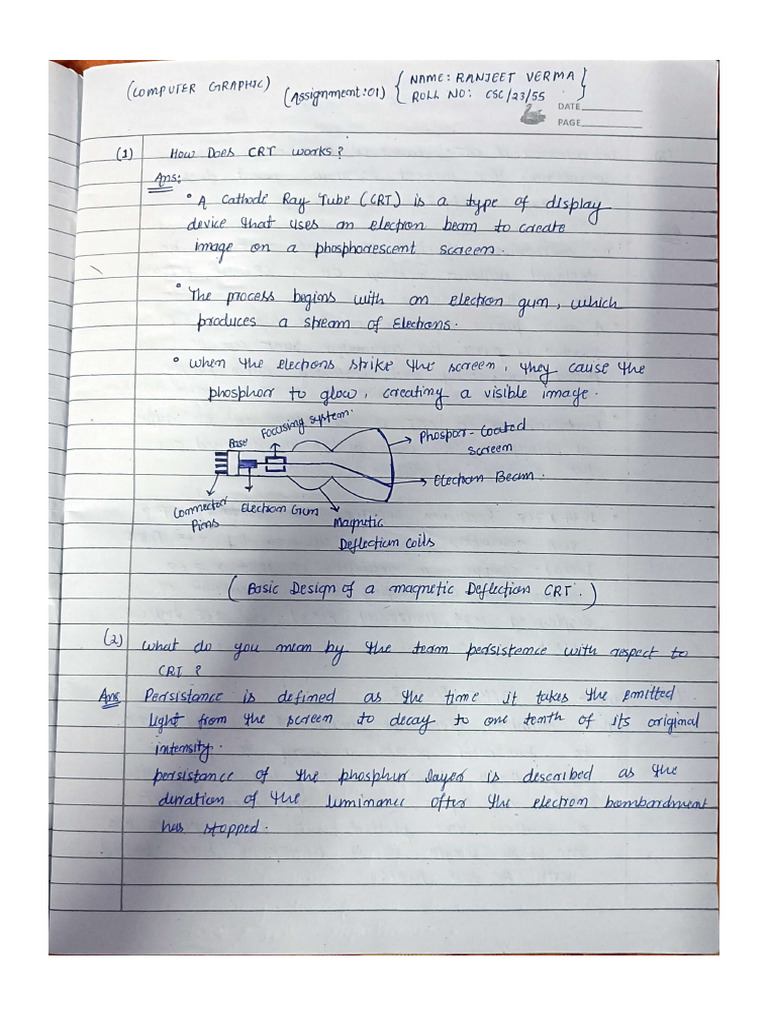 (COMPUTER GRAPHIC) (Assignment:01) { NAME: RANJEET VERMA
ROLL NO: CSC/23/55 }
DATE
PAGE
(1) How Does CRT works?
Ans:
• A Cathode Ray Tube (CRT) is a type of display
device that uses an electron beam to create
image on a phosphorescent screen.
• The process begins with an electron gun, which
produces a stream of Electrons.
• When the electrons strike the screen, they cause the
phosphor to glow, creating a visible image.
Base
Focusing system.
Phospor-Coated
screen
Electron Beam.
Connector
Pins
Electron Gun
Magnetic
Deflection Coils
(Basic Design of a magnetic Deflection CRT.)
(2) What do you mean by the team persistence with respect to
CRT?
Ans Persistance is defined as the time it takes the emitted
light from the screen to decay to one tenth of its original
intensity.
persistance of the phosphur layer is described as the
duration of the luminance after the electron bombardment
has stopped.